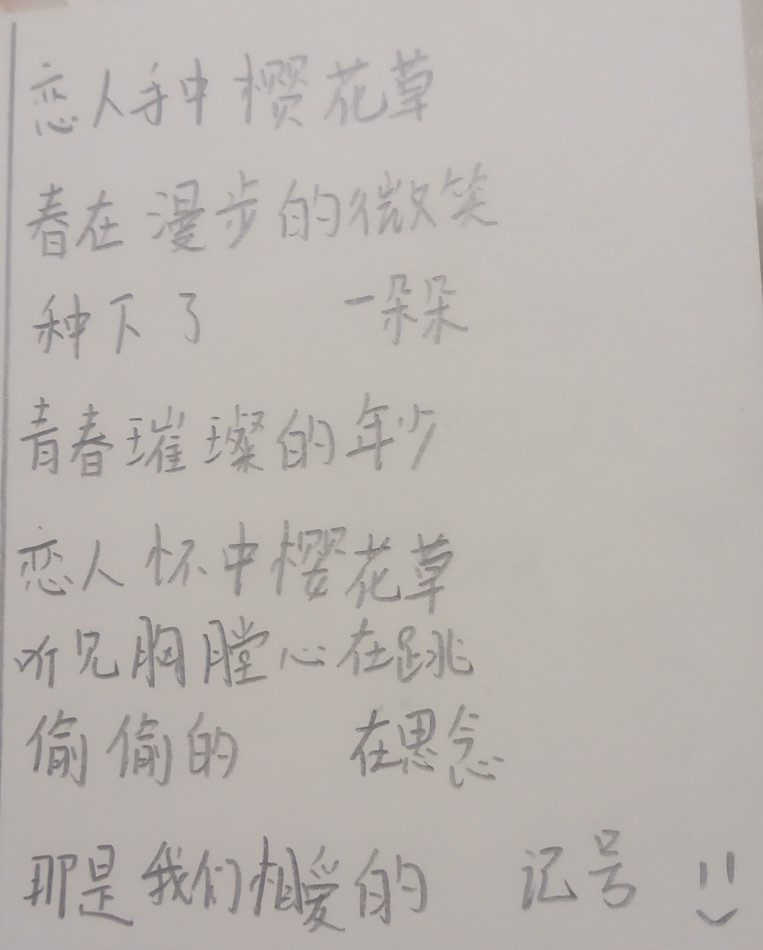 恋人手中樱花草
春在漫步的微笑
种下了 一朵朵
青春璀璨的年少
恋人怀中樱花草
听见胸膛心在跳
偷偷的 在思念
那是我们相爱的 记号